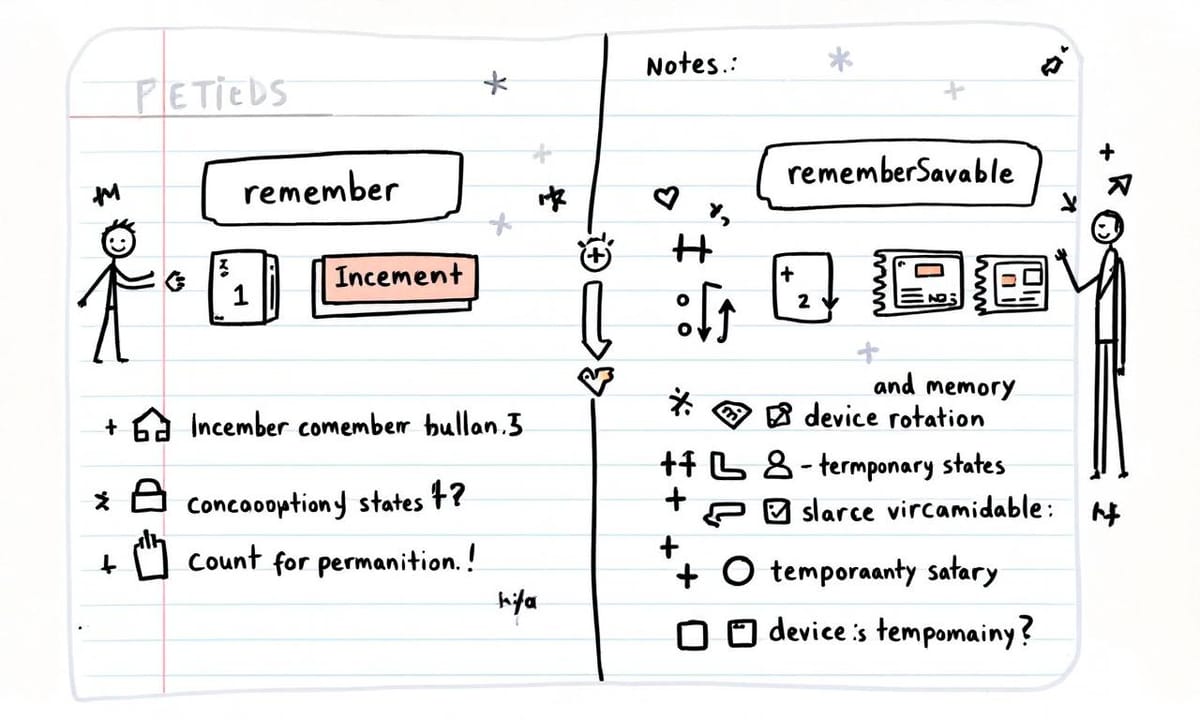 PETieDS
remember
1
Incement
+ Incember comemberr bullan.3
concaooyptiony states †?
count for permanition.!
Notes.:
rememberSavable
+
2
NO:
and memory
device rotation
- termponary states
slarce vircamidable:
temporaanty satary
device:s tempomainy?